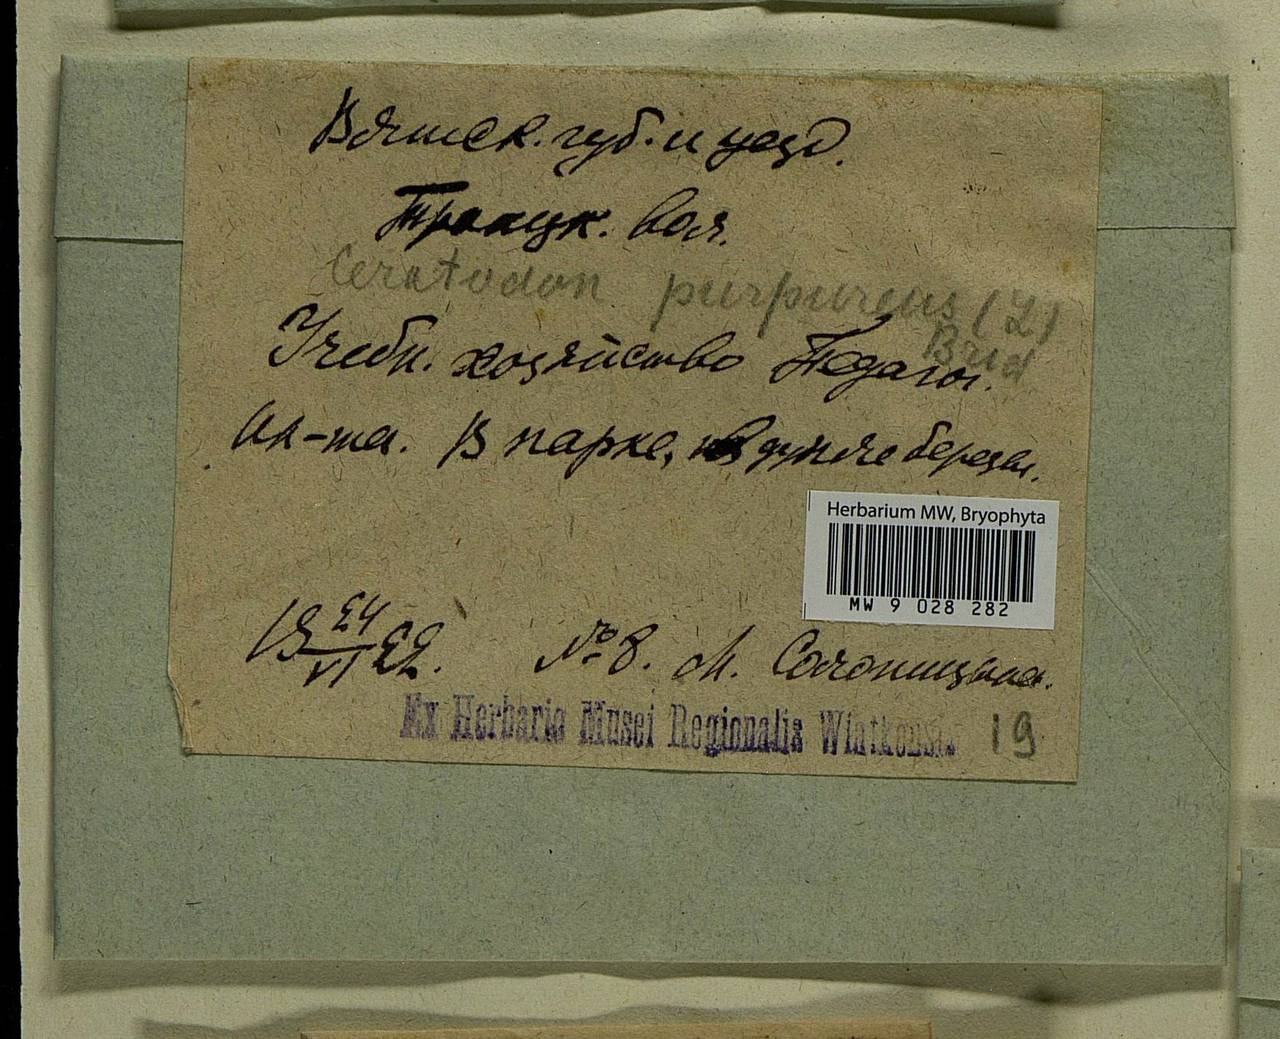 Вятск. губ. и уезд.
Троицк. вол.
Ceratodon purpureus (L)
Brid
Учебн. хозяйство Педагог.
ин-та. В парке, в дупле березы.
19 24/VI 22. № 8. М. Солоницына.
Ex Herbario Musei Regionalis Wiatkensis 19
Herbarium MW, Bryophyta
MW 9 028 282